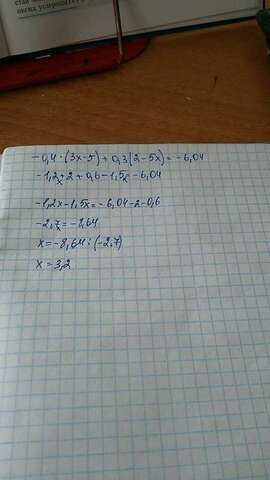 -0,4·(3x-5)+0,3(2-5x)=-6,04
-1,2x+2+0,6-1,5x=-6,04
-1,2x-1,5x=-6,04-2-0,6
-2,7x=-8,64
x=-8,64:(-2,7)
x=3,2